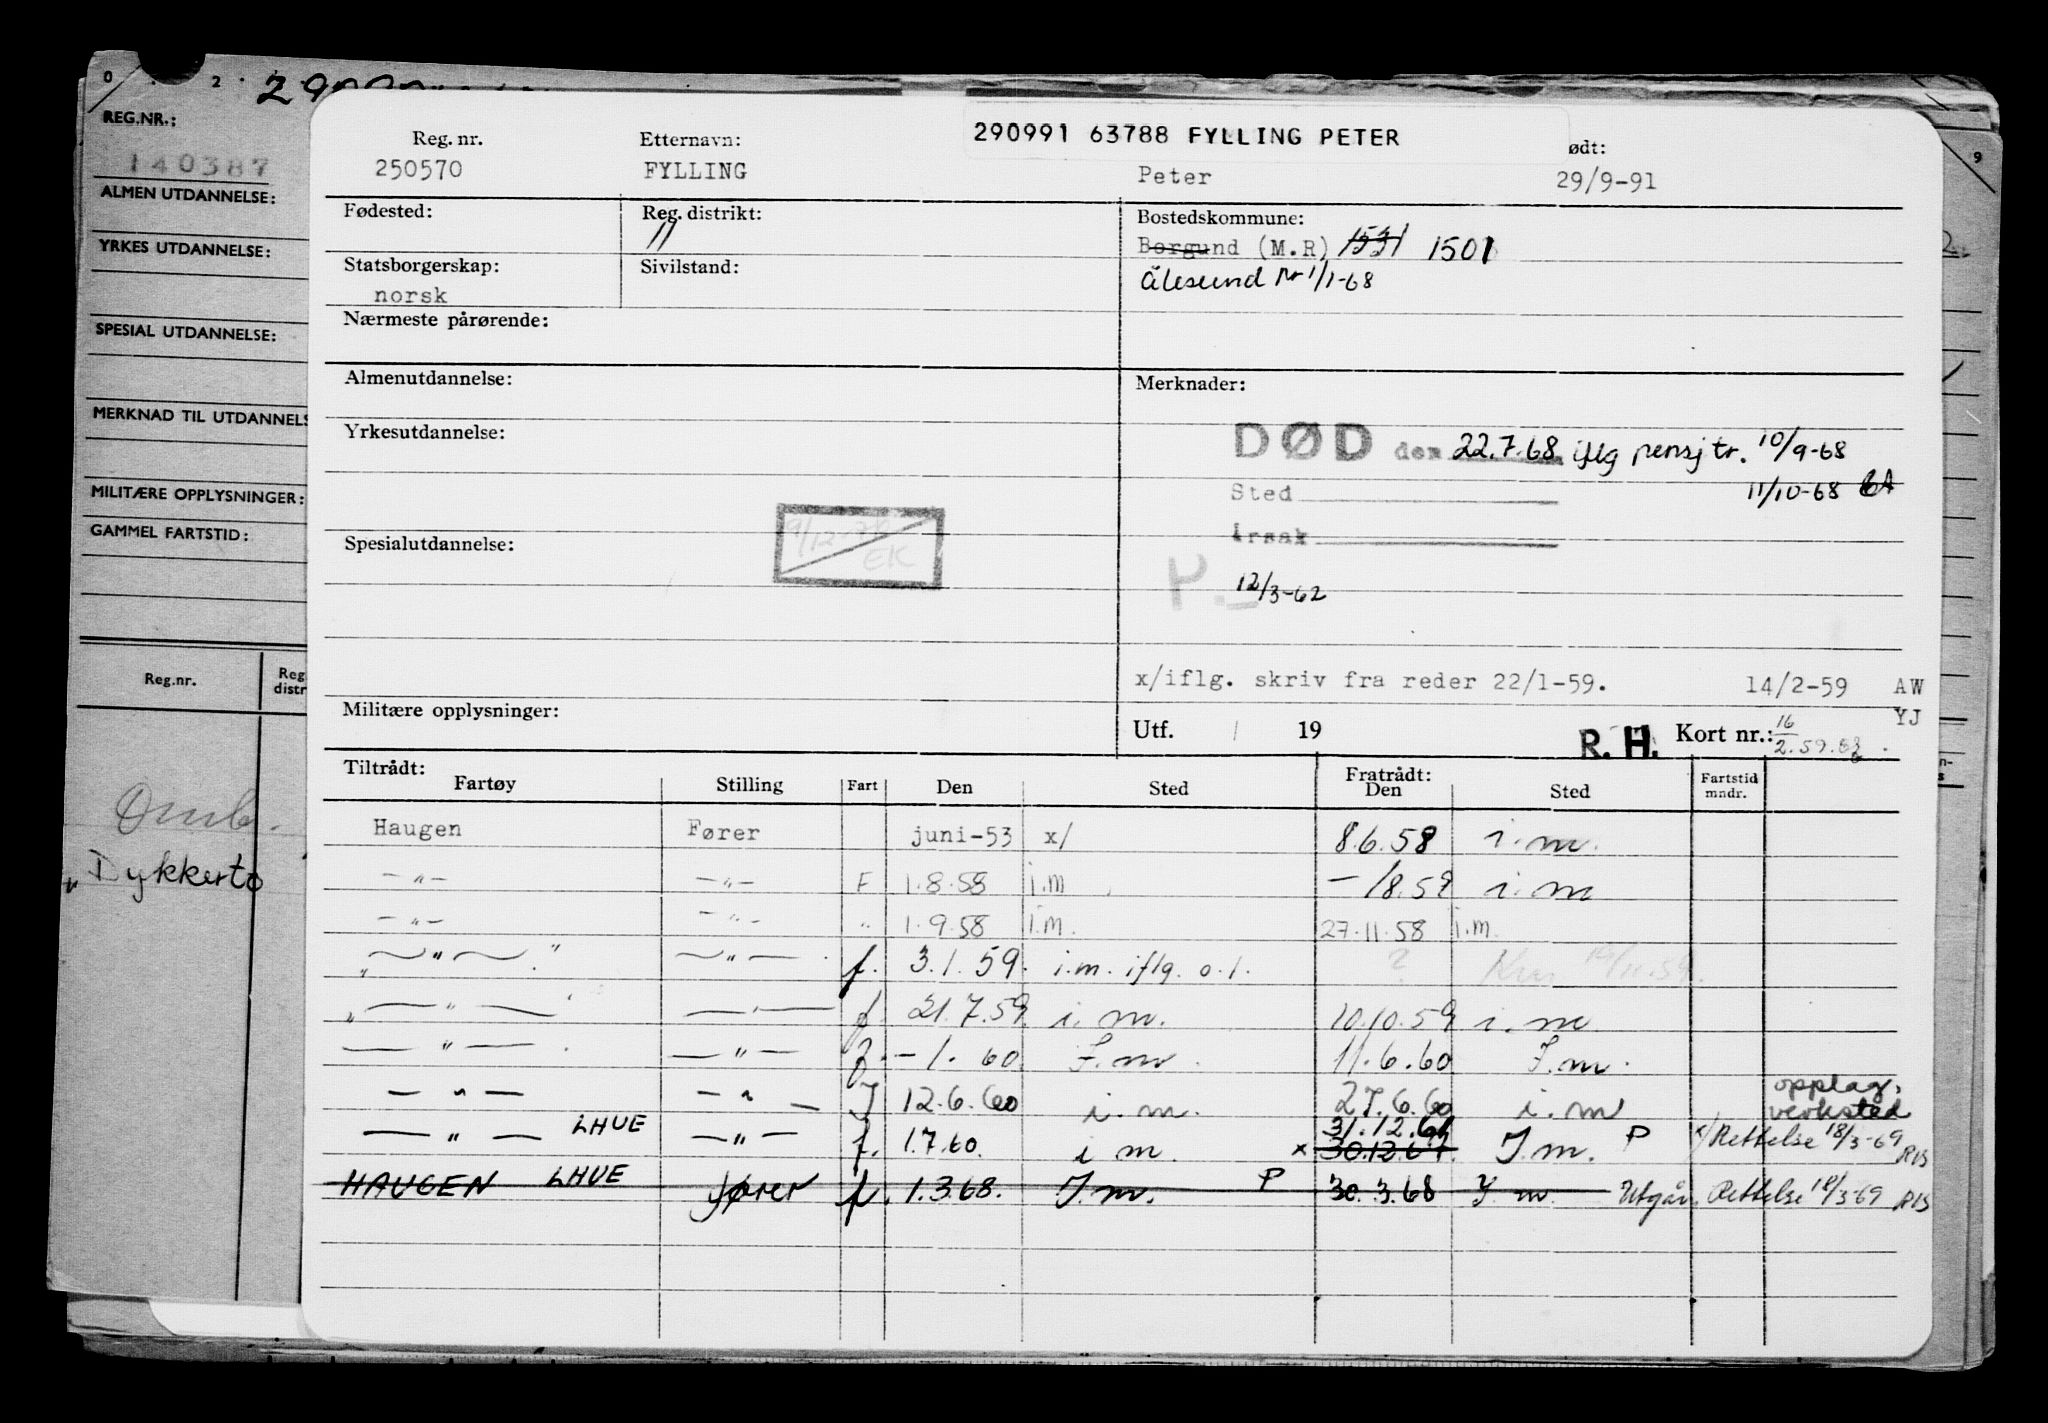 0 2 9
REG.NR.:
140387
ALMEN UTDANNELSE:
YRKES UTDANNELSE:
SPESIAL UTDANNELSE:
MERKNAD TIL UTDANNELS
MILITÆRE OPPLYSNINGER:
GAMMEL FARTSTID:
Reg.nr. Reg distr
Dykkerto
290991 63788 FYLLING PETER
Reg. nr. Etternavn: ødt:
250570 FYLLING Peter 29/9-91
Fødested: Reg. distrikt: Bostedskommune:
11 Borgund (M.R) 1531 1501
Statsborgerskap: Sivilstand: Ålesund pr 1/1-68
norsk
Nærmeste pårørende:
Almenutdannelse: Merknader:
Yrkesutdannelse: DØD den 22.7.68 iflg pensj tr. 10/9-68
Sted 11/10-68
Årsak
Spesialutdannelse: EK
P. 12/3-62
x/iflg. skriv fra reder 22/1-59. 14/2-59 AW
YJ
Militære opplysninger: Utf. 19 R. H. Kort nr.: 16/2.59.
Tiltrådt: Fratrådt: Fartstid mndr.
Fartøy Stilling Fart Den Sted Den Sted
Haugen Fører juni-53 x/ 8.6.58 i.m.
—"— —"— F 1.8.58 i.m —/8.59 i.m
—"— —"— " 1.9.58 i.m. 27.11.58 i.m.
—"— —"— f. 3.1.59. i.m. iflg. o.l. ?
—"— —"— f. 21.7.59 i.m. 10.10.59 i.m
—"— —"— f. —1.60 I.m. 11.6.60 I.m.
—"— —"— f 12.6.60 i.m. 27.6.60 i.m opplag. verksted
—"— LHUE —"— f. 1.7.60. i m. 31.12.61 x 30.12.67. I.m. P x/ Rettelse 18/3-69 RIS
HAUGEN LHUE fører f. 1.3.68. I.m. P 30.3.68 I m. Utgår. Rettelse 18/3-69 RIS